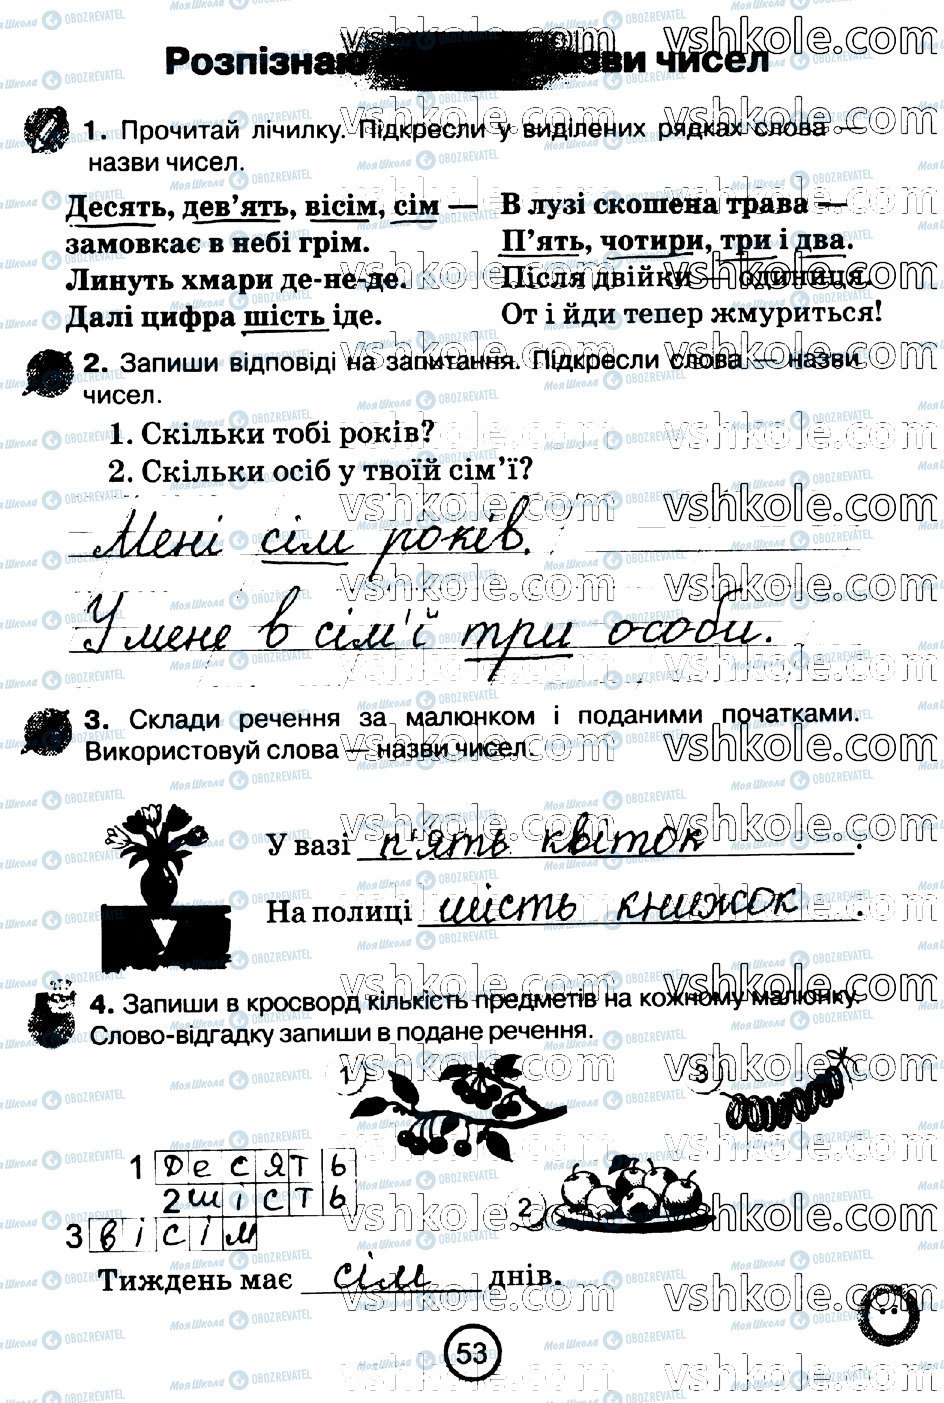 Розпізнаю назви чисел
1. Прочитай лічилку. Підкресли у виділених рядках слова —
назви чисел.
Десять, дев’ять, вісім, сім —
замовкає в небі грім.
Линуть хмари де-не-де.
Далі цифра шість іде.
В лузі скошена трава —
П’ять, чотири, три і два.
Після двійки — одиниця.
От і йди тепер жмуриться!
2. Запиши відповіді на запитання. Підкресли слова — назви
чисел.
1. Скільки тобі років?
2. Скільки осіб у твоїй сім’ї?
Мені сім років.
У мене в сім'ї три особи.
3. Склади речення за малюнком і поданими початками.
Використовуй слова — назви чисел.
У вазі п'ять квіток.
На полиці шість книжок.
4. Запиши в кросворд кількість предметів на кожному малюнку.
Слово-відгадку запиши в подане речення.
1
3
1 Десять
2 шість
2
3 вісім
Тиждень має сім днів.
53
vshkole.com
Моя Школа OBOZREVATEL